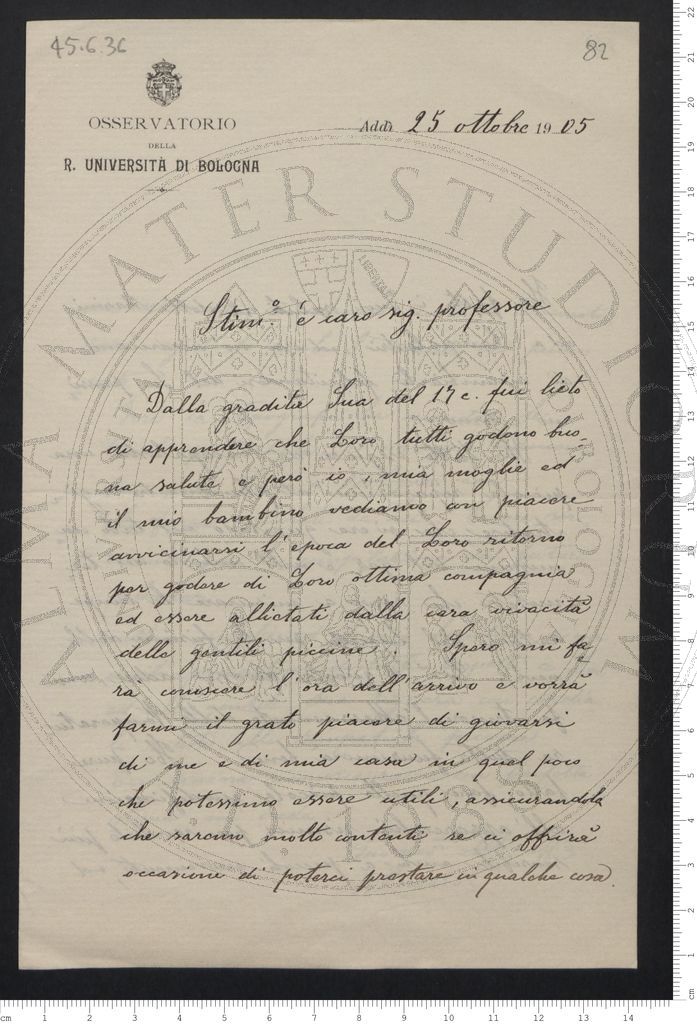 45.6.36
82
OSSERVATORIO
DELLA
R. UNIVERSITÀ DI BOLOGNA
Addì 25 ottobre 1905
Stimº. e caro sig. professore
Dalla gradita Sua del 17 c. fui lieto
di apprendere che Loro tutti godono buo-
na salute e però io, mia moglie ed
il mio bambino vediamo con piacere
avvicinarsi l'epoca del Loro ritorno
per godere di Loro ottima compagnia
ed essere allietati dalla cara vivacità
delle gentili piccine. Spero mi fa-
rà conoscere l'ora dell'arrivo e vorrà
farmi il grato piacere di giovarsi
di me e di mia casa in quel poco
che potessimo essere utili, assicurandola
che saremo molto contenti se ci offrirà
occasione di poterci prestare in qualche cosa.
ALMA MATER STUDIORUM
A.D. 1088
cm 1 2 3 4 5 6 7 8 9 10 11 12 13 14
cm 1 2 3 4 5 6 7 8 9 10 11 12 13 14 15 16 17 18 19 20 21 22